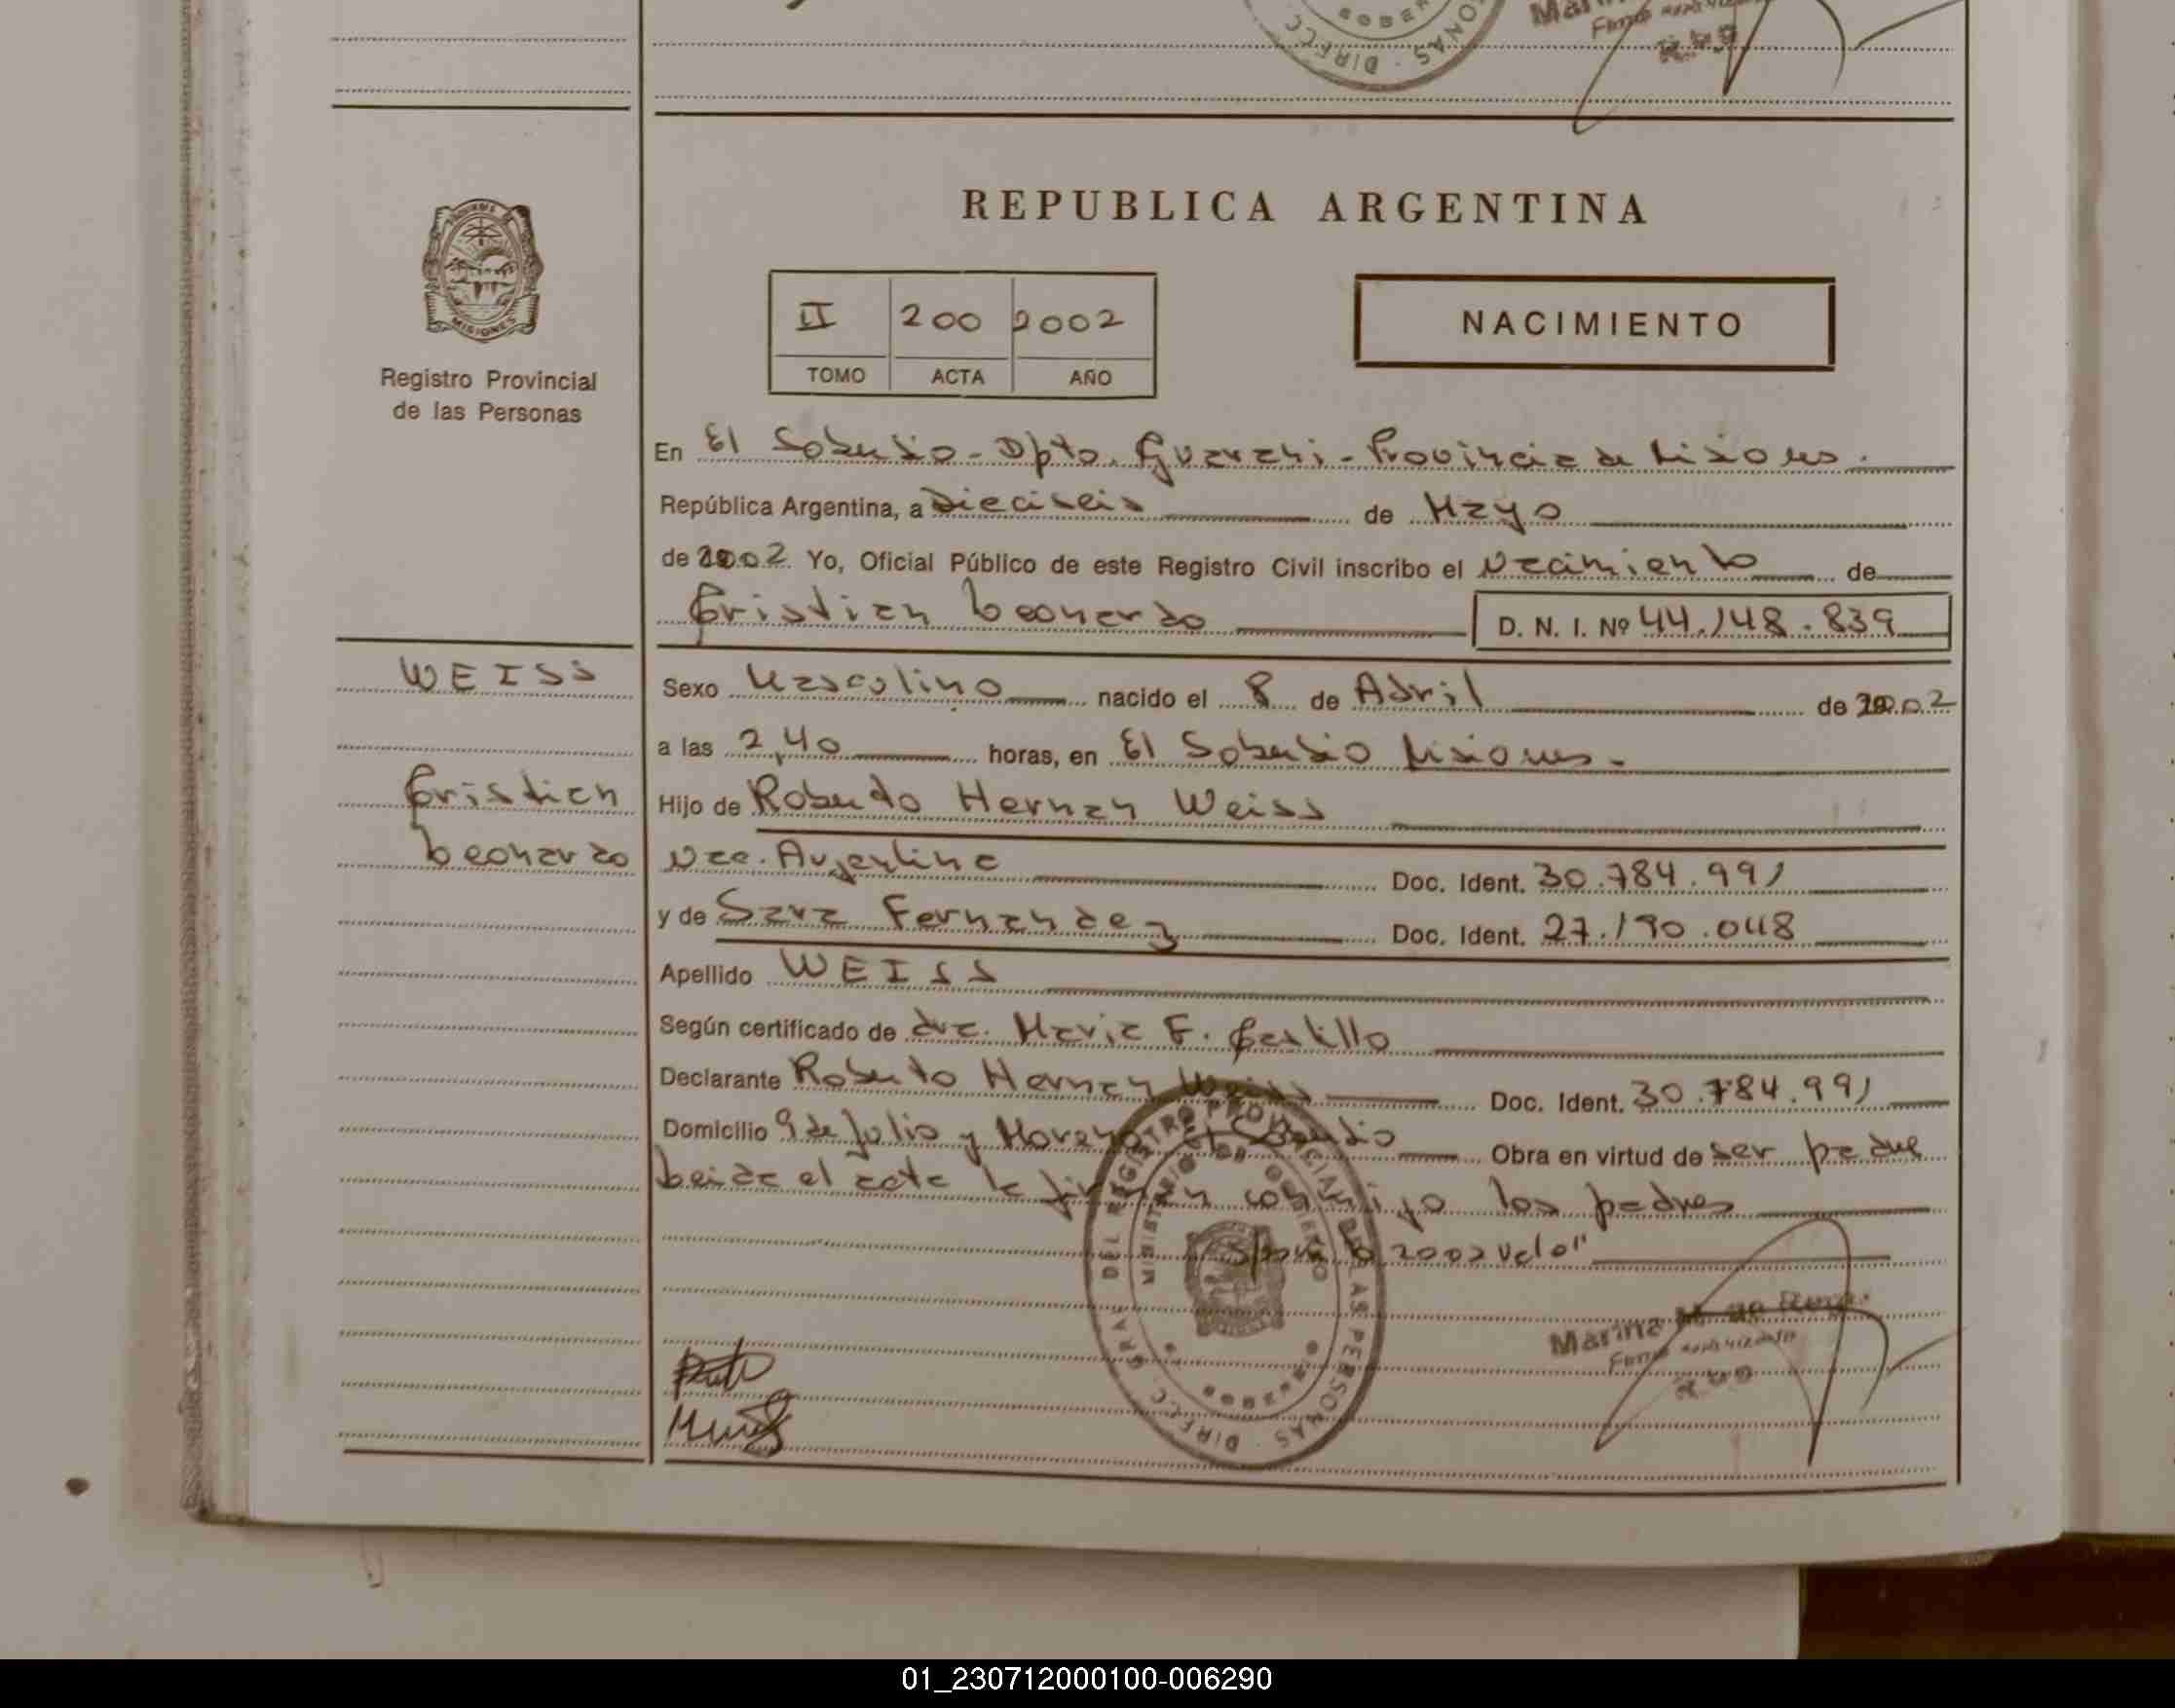 REPUBLICA ARGENTINA
MISIONES
Registro Provincial
de las Personas
II 200 2002
TOMO ACTA AÑO
NACIMIENTO
En El Soberbio - Dpto. Guarani - Provincia de Misiones.
República Argentina, a Dieciseis de Mayo
de 2002 Yo, Oficial Público de este Registro Civil inscribo el Nacimiento de
Cristian Leonardo D. N. I. Nº 44.148.839
WEISS
Cristian
Leonardo
Sexo Masculino nacido el 8 de Abril de 2002
a las 2,40 horas, en El Soberbio Misiones.
Hijo de Roberto Hernan Weiss
Nac. Argentina Doc. Ident. 30.784.991
y de Sara Fernandez Doc. Ident. 27.190.048
Apellido WEISS
Según certificado de dra. Maria F. Castillo
Declarante Roberto Hernan Weiss Doc. Ident. 30.784.991
Domicilio 9 de Julio y Moreno El Soberbio Obra en virtud de ser padre
Leida el acta la firman conmigo los padres
2002 Vale"
DIRECC. GRAL. DEL REGISTRO PROVINCIAL DE LAS PERSONAS
MINISTERIO DE GOBIERNO
Marina
01_230712000100-006290